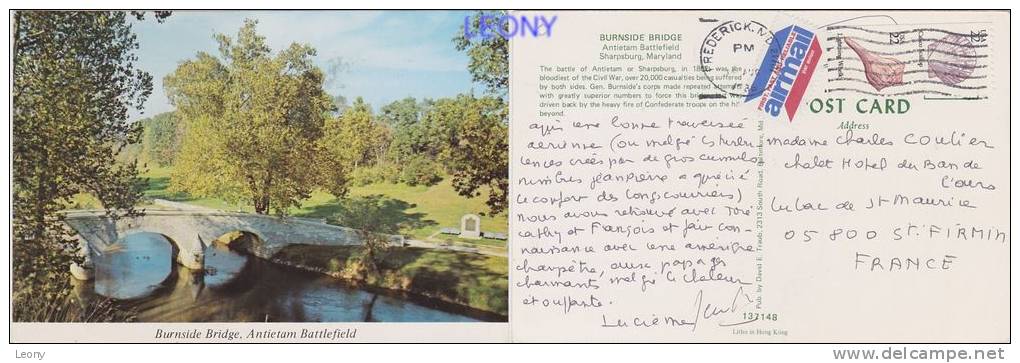 LEONY
Burnside Bridge, Antietam Battlefield
Leony
BURNSIDE BRIDGE
Antietam Battlefield
Sharpsburg, Maryland
The battle of Antietam or Sharpsburg, in
bloodiest of the Civil War, over 20,000 casualties being suffered
by both sides. Gen. Burnside's corps made repeated attempts
with greatly superior numbers to force this bridge
driven back by the heavy fire of Confederate troops on the
beyond.
FREDERICK, MD
PM
airmail
USA
22
USA
22
POST CARD
Address
après une bonne traversée
aérienne (ou malgré les turbu
lences créées par de gros cumulo
nimbus jeanpierre a apprécié
le confort des longs courriers)
nous avons retrouvé avec joie
cathy et François et fait con-
naissance avec une amérique
champêtre, aux paysages
charmants malgré la chaleur
étouffante.
Lucienne
madame Charles COULIER
chalet Hotel du Ban de
l'ours
Le Lac de St Maurice
05800 St. FIRMIN
FRANCE
Pub. by David E. Traub, 2313 South Road, Baltimore, Md.
137148
Litho in Hong Kong
http://www.delcampe.net